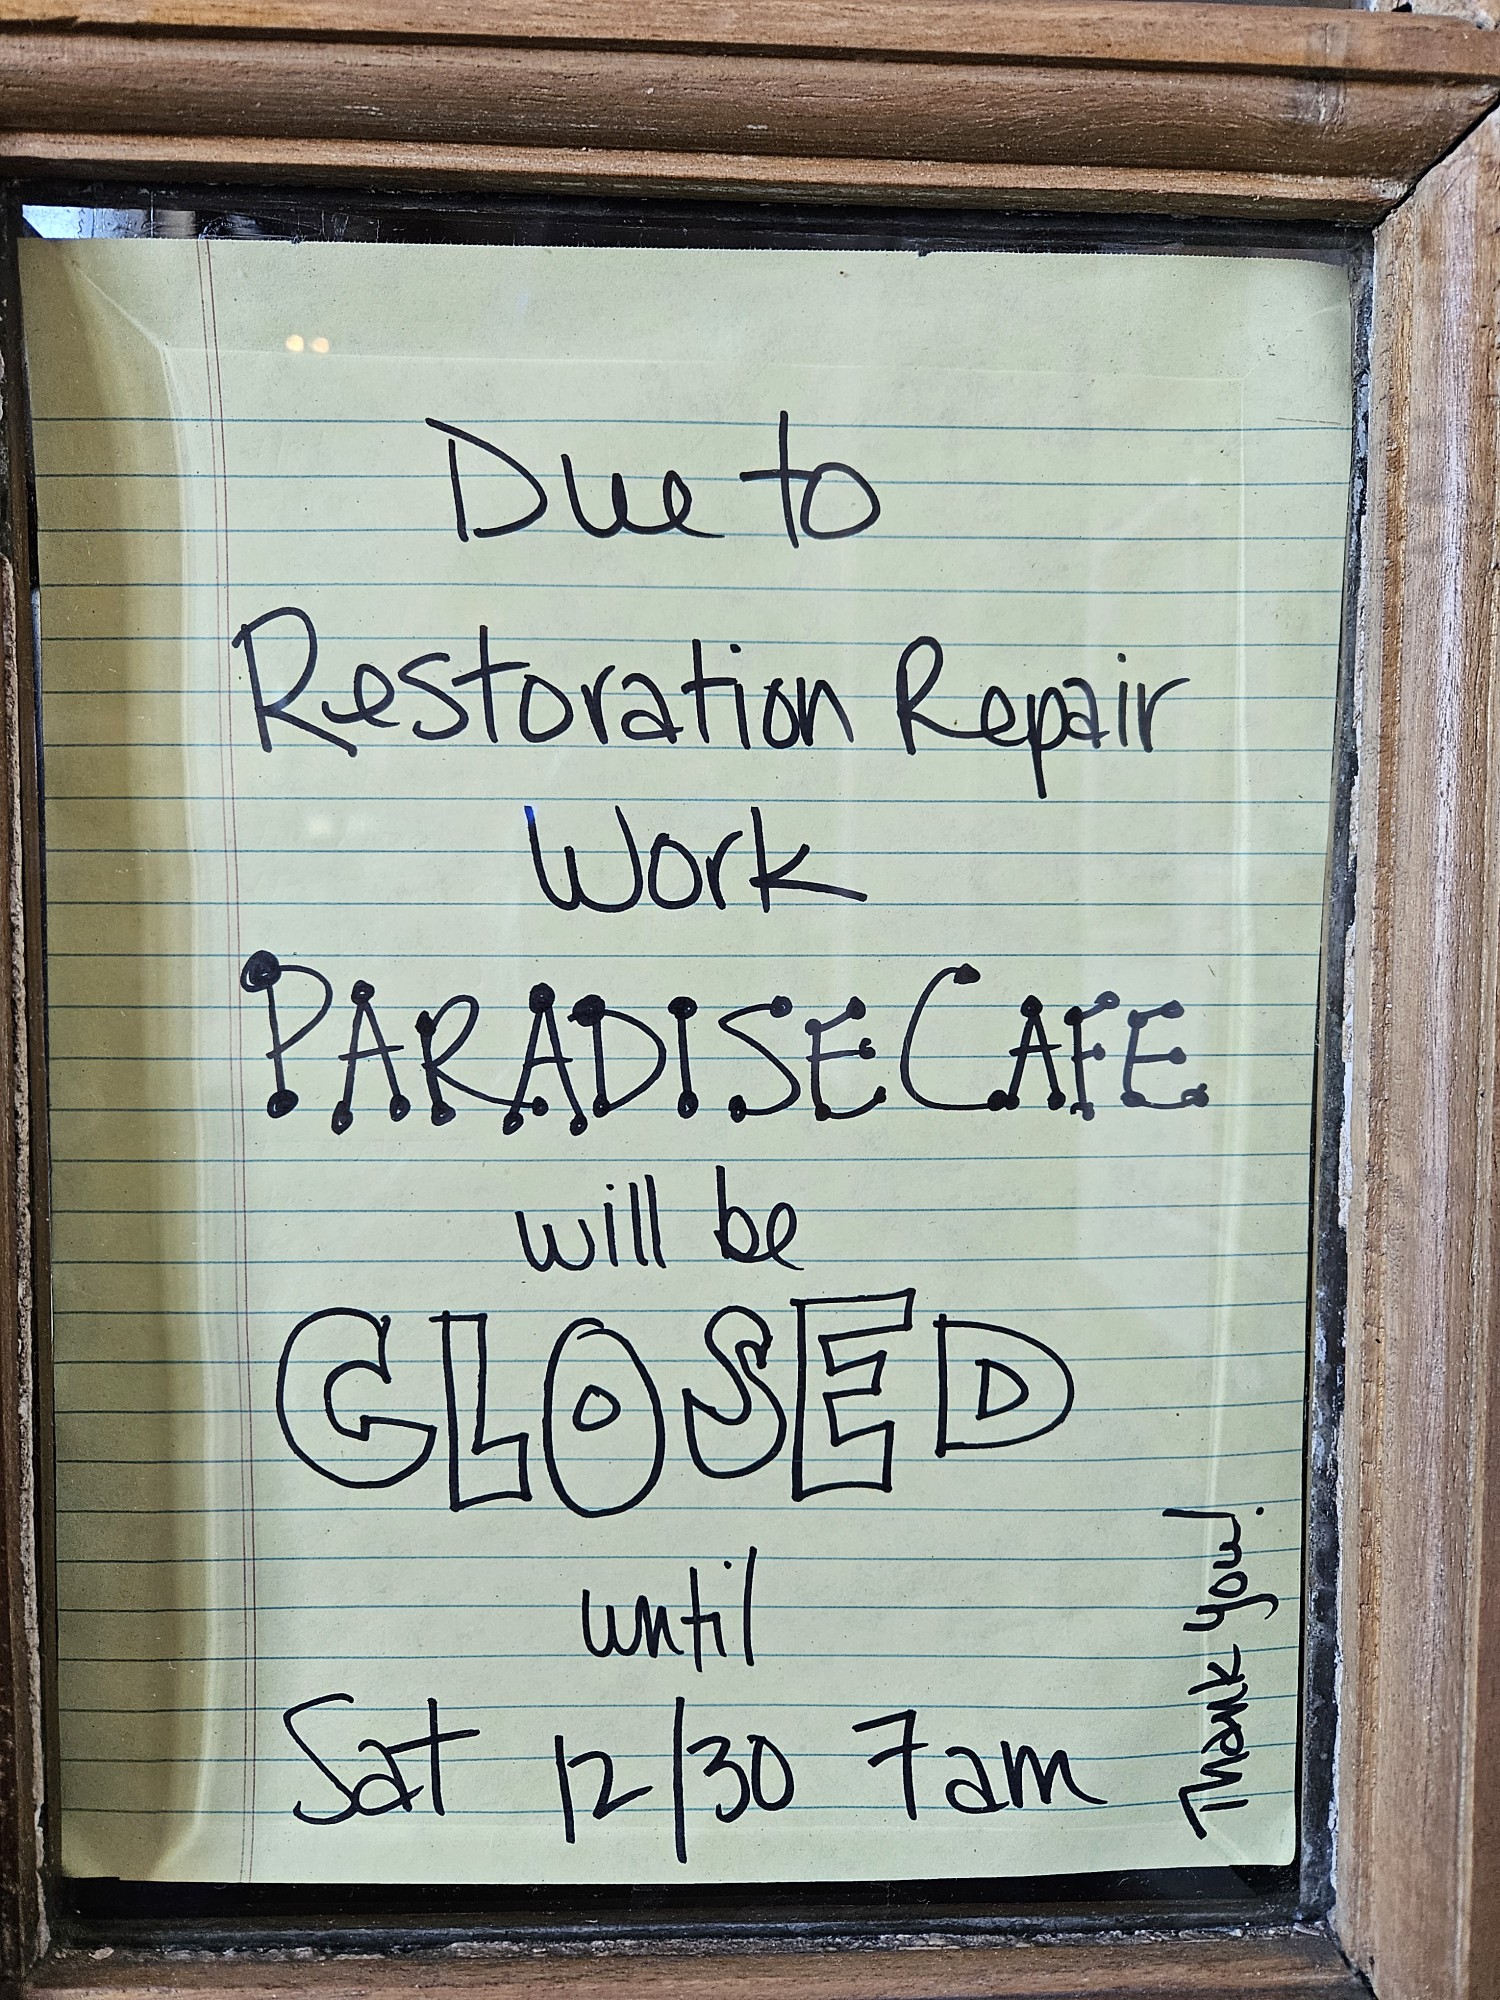 Due to
Restoration Repair
Work
PARADISE CAFE
will be
CLOSED
until
Sat 12/30 7am
Thank you!